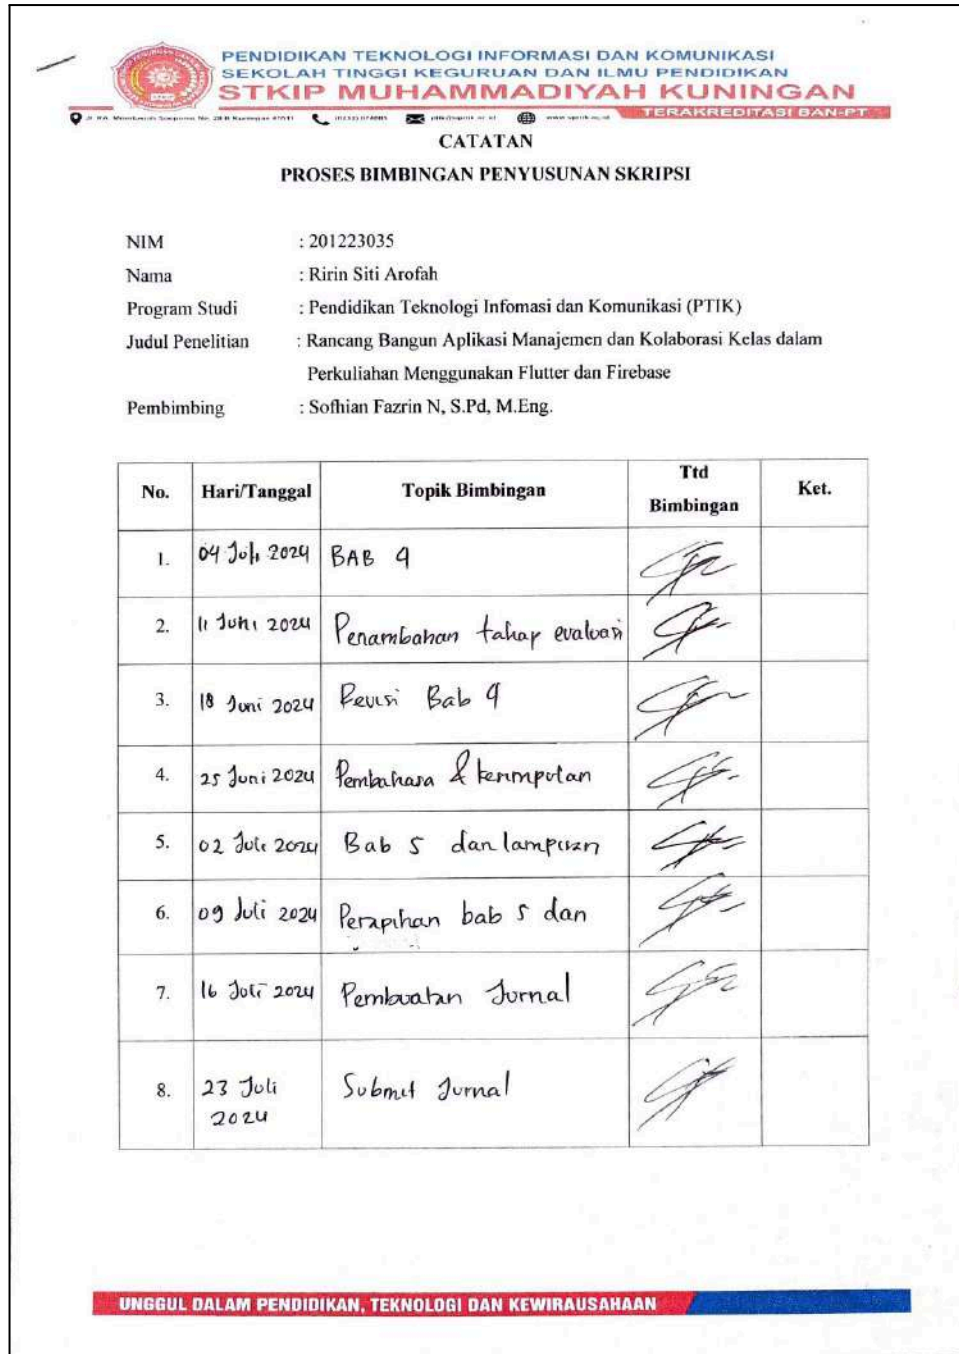 PENDIDIKAN TEKNOLOGI INFORMASI DAN KOMUNIKASI
SEKOLAH TINGGI KEGURUAN DAN ILMU PENDIDIKAN
STKIP MUHAMMADIYAH KUNINGAN
TERAKREDITASI BAN-PT
CATATAN
PROSES BIMBINGAN PENYUSUNAN SKRIPSI
NIM : 201223035
Nama : Ririn Siti Arofah
Program Studi : Pendidikan Teknologi Infomasi dan Komunikasi (PTIK)
Judul Penelitian : Rancang Bangun Aplikasi Manajemen dan Kolaborasi Kelas dalam
Perkuliahan Menggunakan Flutter dan Firebase
Pembimbing : Sofhian Fazrin N, S.Pd, M.Eng.
No. Hari/Tanggal Topik Bimbingan Ttd Bimbingan Ket.
1. 04 2024 BAB 4
2. 11 Juni 2024 Penambahan tahap evaluasi
3. 18 Juni 2024 Revisi Bab 4
4. 25 Juni 2024 Pembahasa & kesimpulan
5. 02 Juli 2024 Bab 5 dan lampiran
6. 09 Juli 2024 Perapihan bab 5 dan
7. 16 Juli 2024 Pembuatan Jurnal
8. 23 Juli 2024 Submit Jurnal
UNGGUL DALAM PENDIDIKAN, TEKNOLOGI DAN KEWIRAUSAHAAN